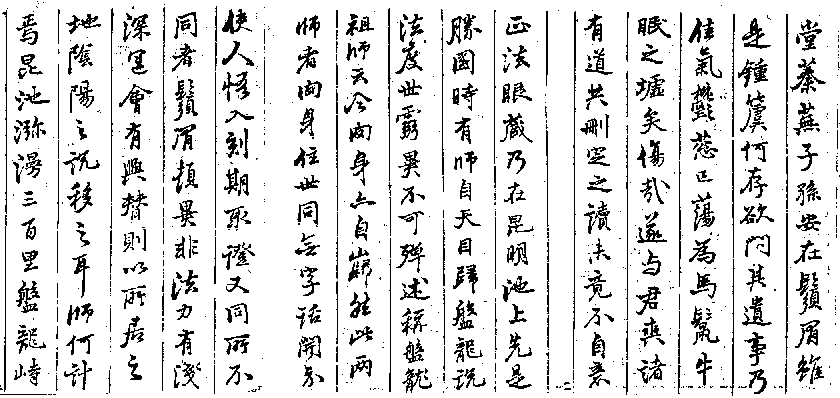 堂蓁蕪子孫安在鬚眉雖
是鍾簴何存欲問其遺事乃
佳氣鬱葱已蕩為馬鬣牛
眠之墟矣傷哉遂与君奭諸
有道共刪定之讀未竟不自意
正法眼藏乃在昆明池上先是
勝國時有师自天目歸盤龍說
法度世靈異不可殫述稱盤龍
祖师云今肉身亠自巋然此兩
师者肉身住世同無字話開示
使人悟入刻期取證又同所不
同者鬚眉頓異非法力有淺
深運會有興替則以所居之
地陰陽之說移之耳师何計
焉昆池瀰漫三百里盤龍峙